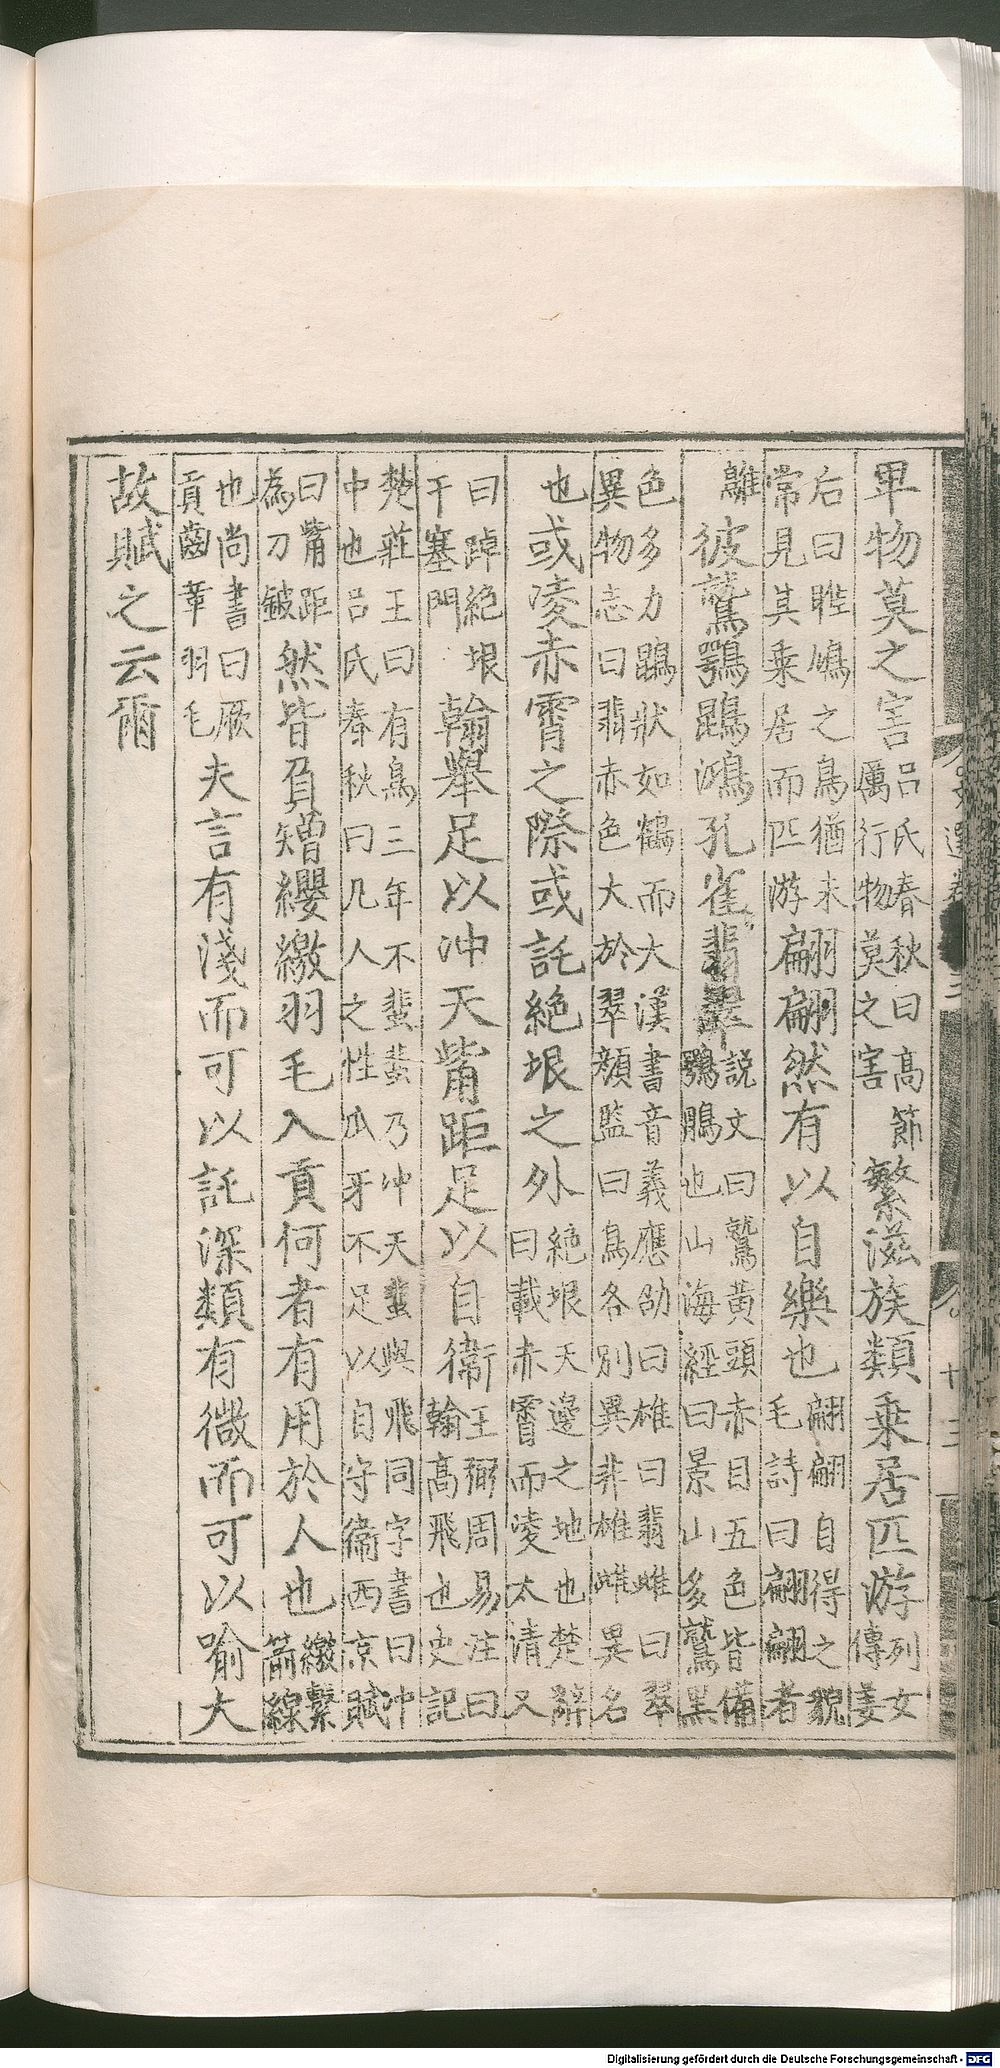 卑物莫之害呂氏春秋曰高節厲行物莫之害繁滋族類乘居匹游列女傳姜
后曰雎鳩之鳥猶未常見其乘居而匹游翩翩然有以自樂也翩翩自得之貌毛詩曰翩翩者
鵻彼鷲鶚鵾鴻孔雀翡翠説文曰鷲黃頭赤目五色皆備鶚鵰也山海經曰景山多鷲黑
色多力鵾狀如鶴而大漢書音義應劭曰雄曰翡雌曰翠異物志曰翡赤色大於翠顏監曰鳥各別異非雄雌異名
也或凌赤霄之際或託絶垠之外絶垠天邊之地也楚辭曰載赤霄而凌太清又
曰踔絶垠干塞門翰舉足以冲天觜距足以自衞王弼周易注曰翰高飛也史記
楚莊王曰有鳥三年不蜚蜚乃冲天蜚與飛同字書曰冲中也呂氏春秋曰凡人之性爪牙不足以自守衞西京賦
曰觜距為刀鈹然皆負矰纓繳羽毛入貢何者有用於人也繳繫箭線
也尚書曰厥貢齒革羽毛夫言有淺而可以託深類有微而可以喻大
故賦之云爾
Digitalisierung gefördert durch die Deutsche Forschungsgemeinschaft - DFG